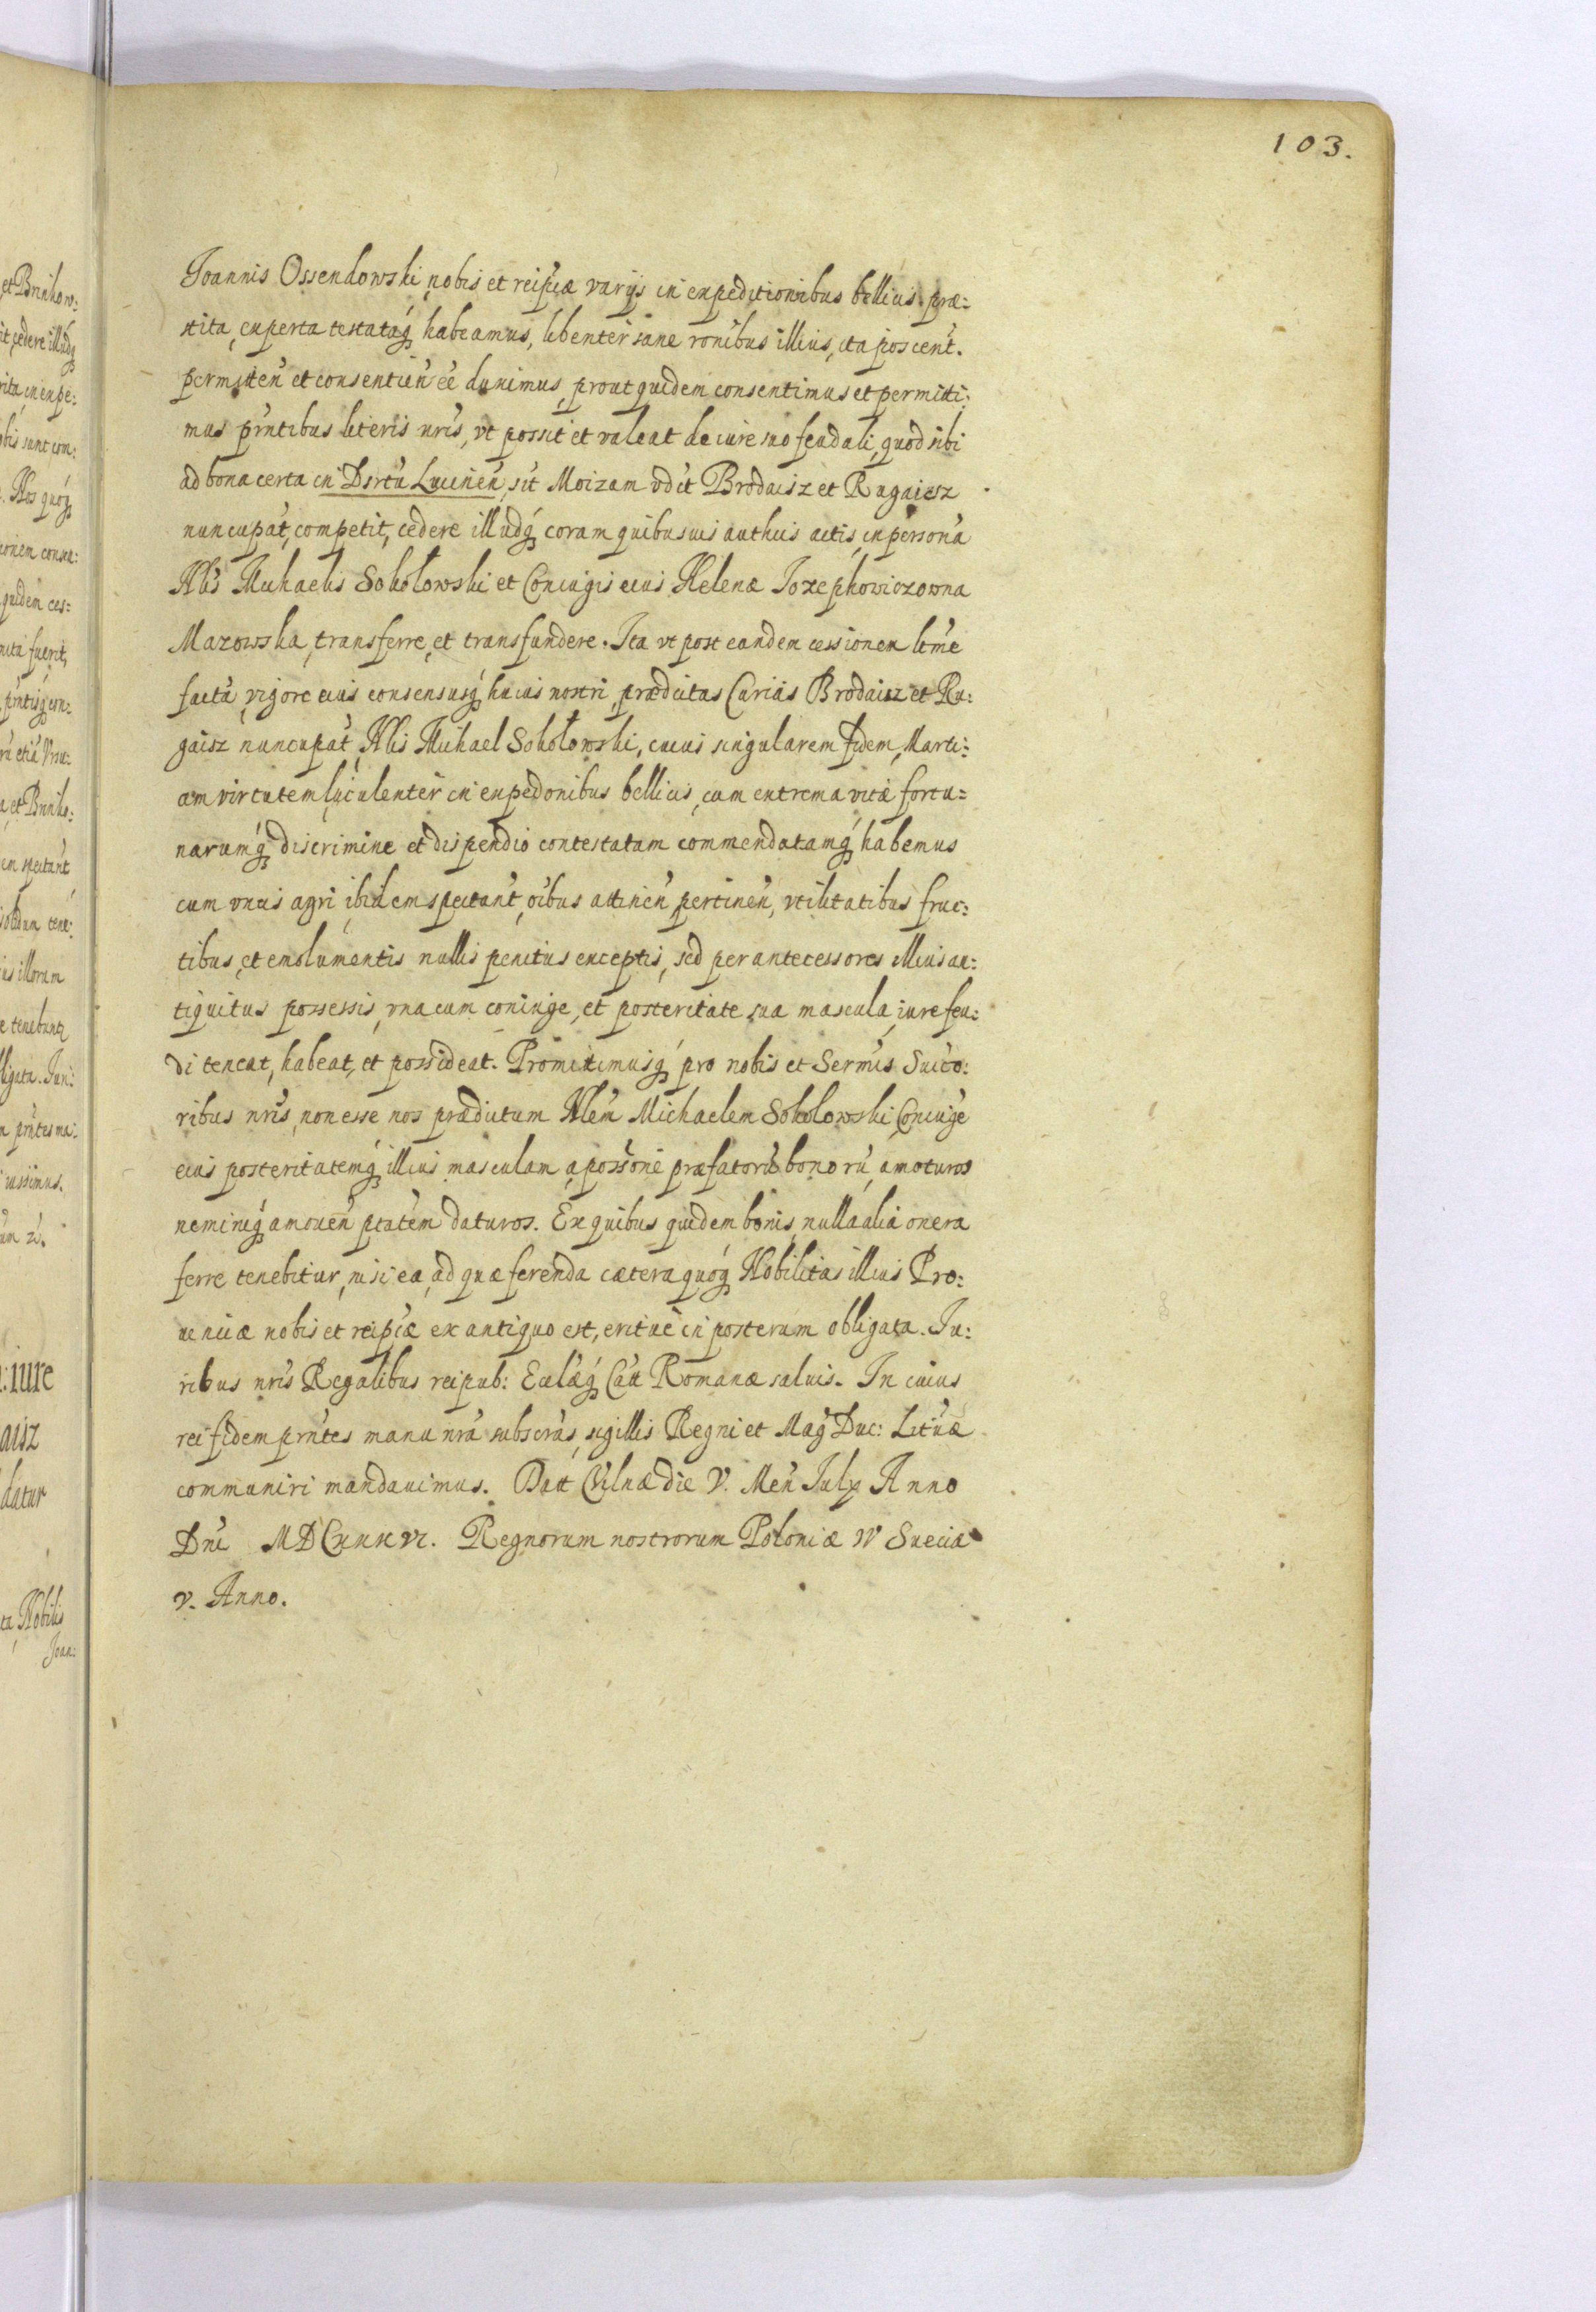 103.
Joannis Ossendowski nobis et reipcæ varijs in expeditionibus bellicis præ:
stita, experta testataq́ꝫ habeamus, libenter sane ronibus illius, ita poscent.
permitteñ et consentieñ eé duximus, prout quidem consentimus et permitti:
mus pn̄tibus literis nr̄is, vt possit et valeat de iure suo feudali, quod sibi
ad bona certa in Dsrtu Lucineñ, sit Moizam vdit Brodaisz et Rugaisz
nuncupat, competit, cedere illudq́ꝫ coram quibusuis authcis actis, in persona
Nlis Michaelis Sokołowski et Coniugis eius Helenæ Jozephowiczowna
Mazowska, transferre, et transfundere. Ita vt post eandem cessionem ltme
factā, vigore eius consensusq́ꝫ huius nostri, prædictas Curias Brodaisz et Ru:
gaisz nuncupat, Nlis Michael Sokołowski, cuius singularem fidem, Marti:
am virtutem luculenter in expedonibus bellicis, cum extrema vitæ fortu=
narumq́ꝫ discrimine et dispendio contestatam commendatamq́ꝫ habemus
cum vncis agri ibidem spectant, oībus attineñ pertineñ, vtilitatibus fruc:
tibus, et emolumentis nullis penitus exceptis, sed per antecessores illius an:
tiquitus possessis, vna cum coniuge, et posteritate sua mascula, iure feu:
di teneat, habeat, et possideat. Promittimusq́ꝫ pro nobis et Sermis Sucto:
ribus nr̄is, non esse nos prædictum Nlem Michaelem Sokolowski, Coniuge
eius posteritatemq́ꝫ illius masculam a possone præfatorū bonorū, amoturos
neminiq́ꝫ amoueñ ptatem daturos. Ex quibus quidem bonis, nulla alia onera
ferre tenebitur, nisi ea, ad quæ ferenda cætera quóqꝫ Nobilitas illius Pro:
uinciæ nobis et reipcæ ex antiquo est, eritue in posterum obligata. Iu:
ribus nr̄is Regalibus reipub: Ecclæq́ꝫ Catt Romanæ saluis. In cuius
rei fidem pn̄tes manu nr̄a subscras, sigillis Regni et Mag Duc: Lituæ
communiri mandauimus. Datt Vilnæ die V. Men July Anno
Dni MDCxxxvi. Regnorum nostrorum Poloniæ IV Sueciæ
v. Anno.